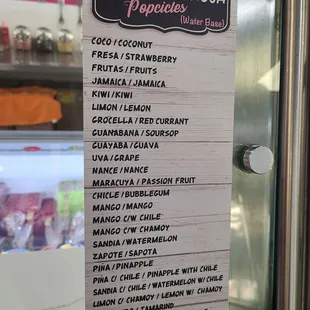 Popcicles
(Water Base)
COCO / COCONUT
FRESA / STRAWBERRY
FRUTAS / FRUITS
JAMAICA / JAMAICA
KIWI / KIWI
LIMON / LEMON
GROCELLA / RED CURRANT
GUANABANA / SOURSOP
GUAYABA / GUAVA
UVA / GRAPE
NANCE / NANCE
MARACUYA / PASSION FRUIT
CHICLE / BUBBLEGUM
MANGO / MANGO
MANGO C/W CHILE
MANGO C/W CHAMOY
SANDIA / WATERMELON
ZAPOTE / SAPOTA
PIÑA / PINEAPPLE
PIÑA C/ CHILE / PINEAPPLE WITH CHILE
SANDIA C/ CHILE / WATERMELON W/ CHILE
LIMON C/ CHAMOY / LEMON W/ CHAMOY
/ TAMARIND